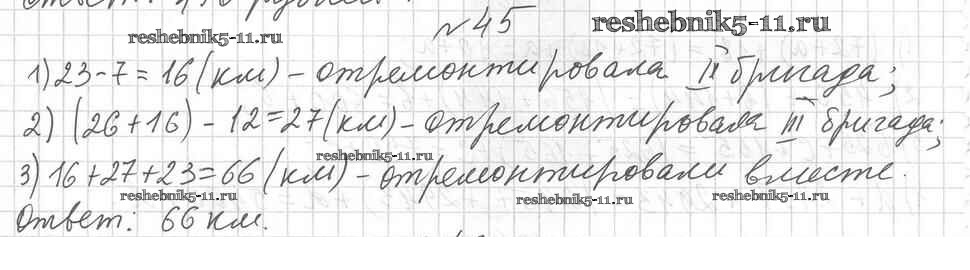 №45
reshebnik5-11.ru
reshebnik5-11.ru
1) 23-7=16 (км) - отремонтировала II бригада;
2) (26+16) - 12=27 (км) - отремонтировала III бригада;
reshebnik5-11.ru
3) 16+27+23=66 (км) - отремонтировали вместе.
reshebnik5-11.ru
reshebnik5-11.ru
reshebnik5-11.ru
Ответ: 66 км.